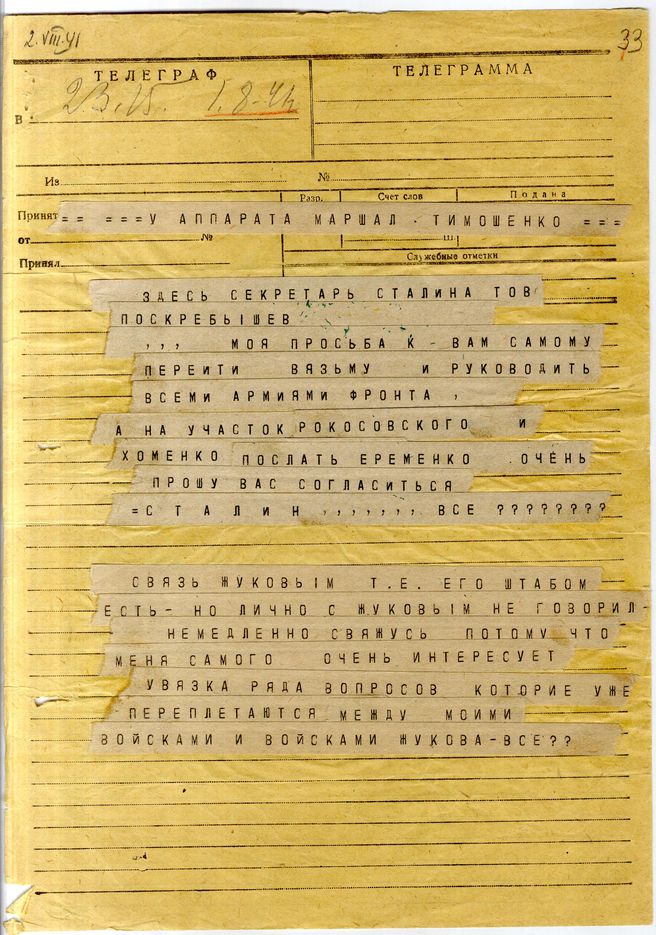 2.VIII.41
33
ТЕЛЕГРАФ
ТЕЛЕГРАММА
23.15. 1.8-41
В
Из № 
Разр. Счет слов Подана
Принят == ===У АППАРАТА МАРШАЛ - ТИМОШЕНКО ===
от № Ш
Принял Служебные отметки
ЗДЕСЬ СЕКРЕТАРЬ СТАЛИНА ТОВ
ПОСКРЕБЫШЕВ
,,, МОЯ ПРОСЬБА К - ВАМ САМОМУ
ПЕРЕИТИ ВЯЗЬМУ И РУКОВОДИТЬ
ВСЕМИ АРМИЯМИ ФРОНТА ,
А НА УЧАСТОК РОКОСОВСКОГО И
ХОМЕНКО ПОСЛАТЬ ЕРЕМЕНКО ОЧЕНЬ
ПРОШУ ВАС СОГЛАСИТЬСЯ
=СТАЛИН ,,,,,,, ВСЕ ????????
СВЯЗЬ ЖУКОВЫМ Т.Е. ЕГО ШТАБОМ
ЕСТЬ- НО ЛИЧНО С ЖУКОВЫМ НЕ ГОВОРИЛ-
НЕМЕДЛЕННО СВЯЖУСЬ ПОТОМУ ЧТО
МЕНЯ САМОГО ОЧЕНЬ ИНТЕРЕСУЕТ
УВЯЗКА РЯДА ВОПРОСОВ КОТОРИЕ УЖЕ
ПЕРЕПЛЕТАЮТСЯ МЕЖДУ МОИМИ
ВОЙСКАМИ И ВОЙСКАМИ ЖУКОВА-ВСЕ??